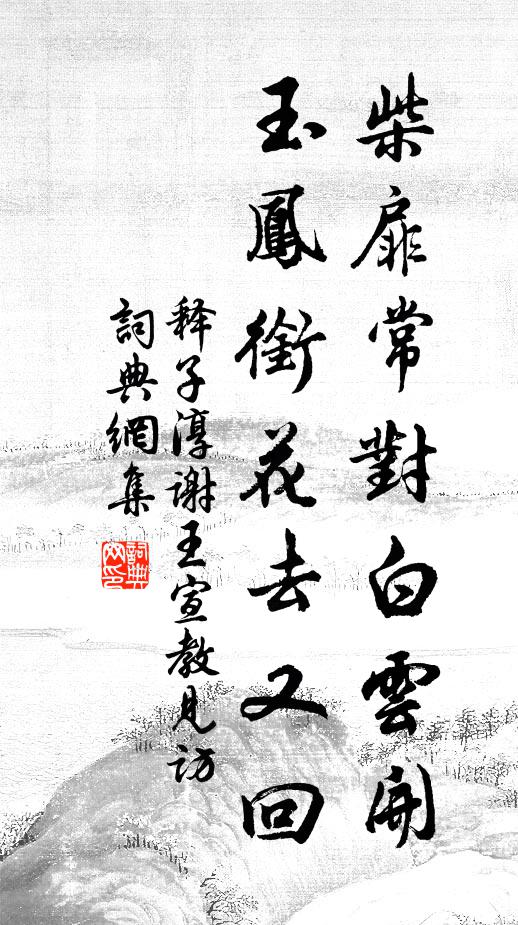 柴扉常對白雲開
玉鳳銜花去又回
释子淳谢王宣教見访
詞典網集
詞典
网印